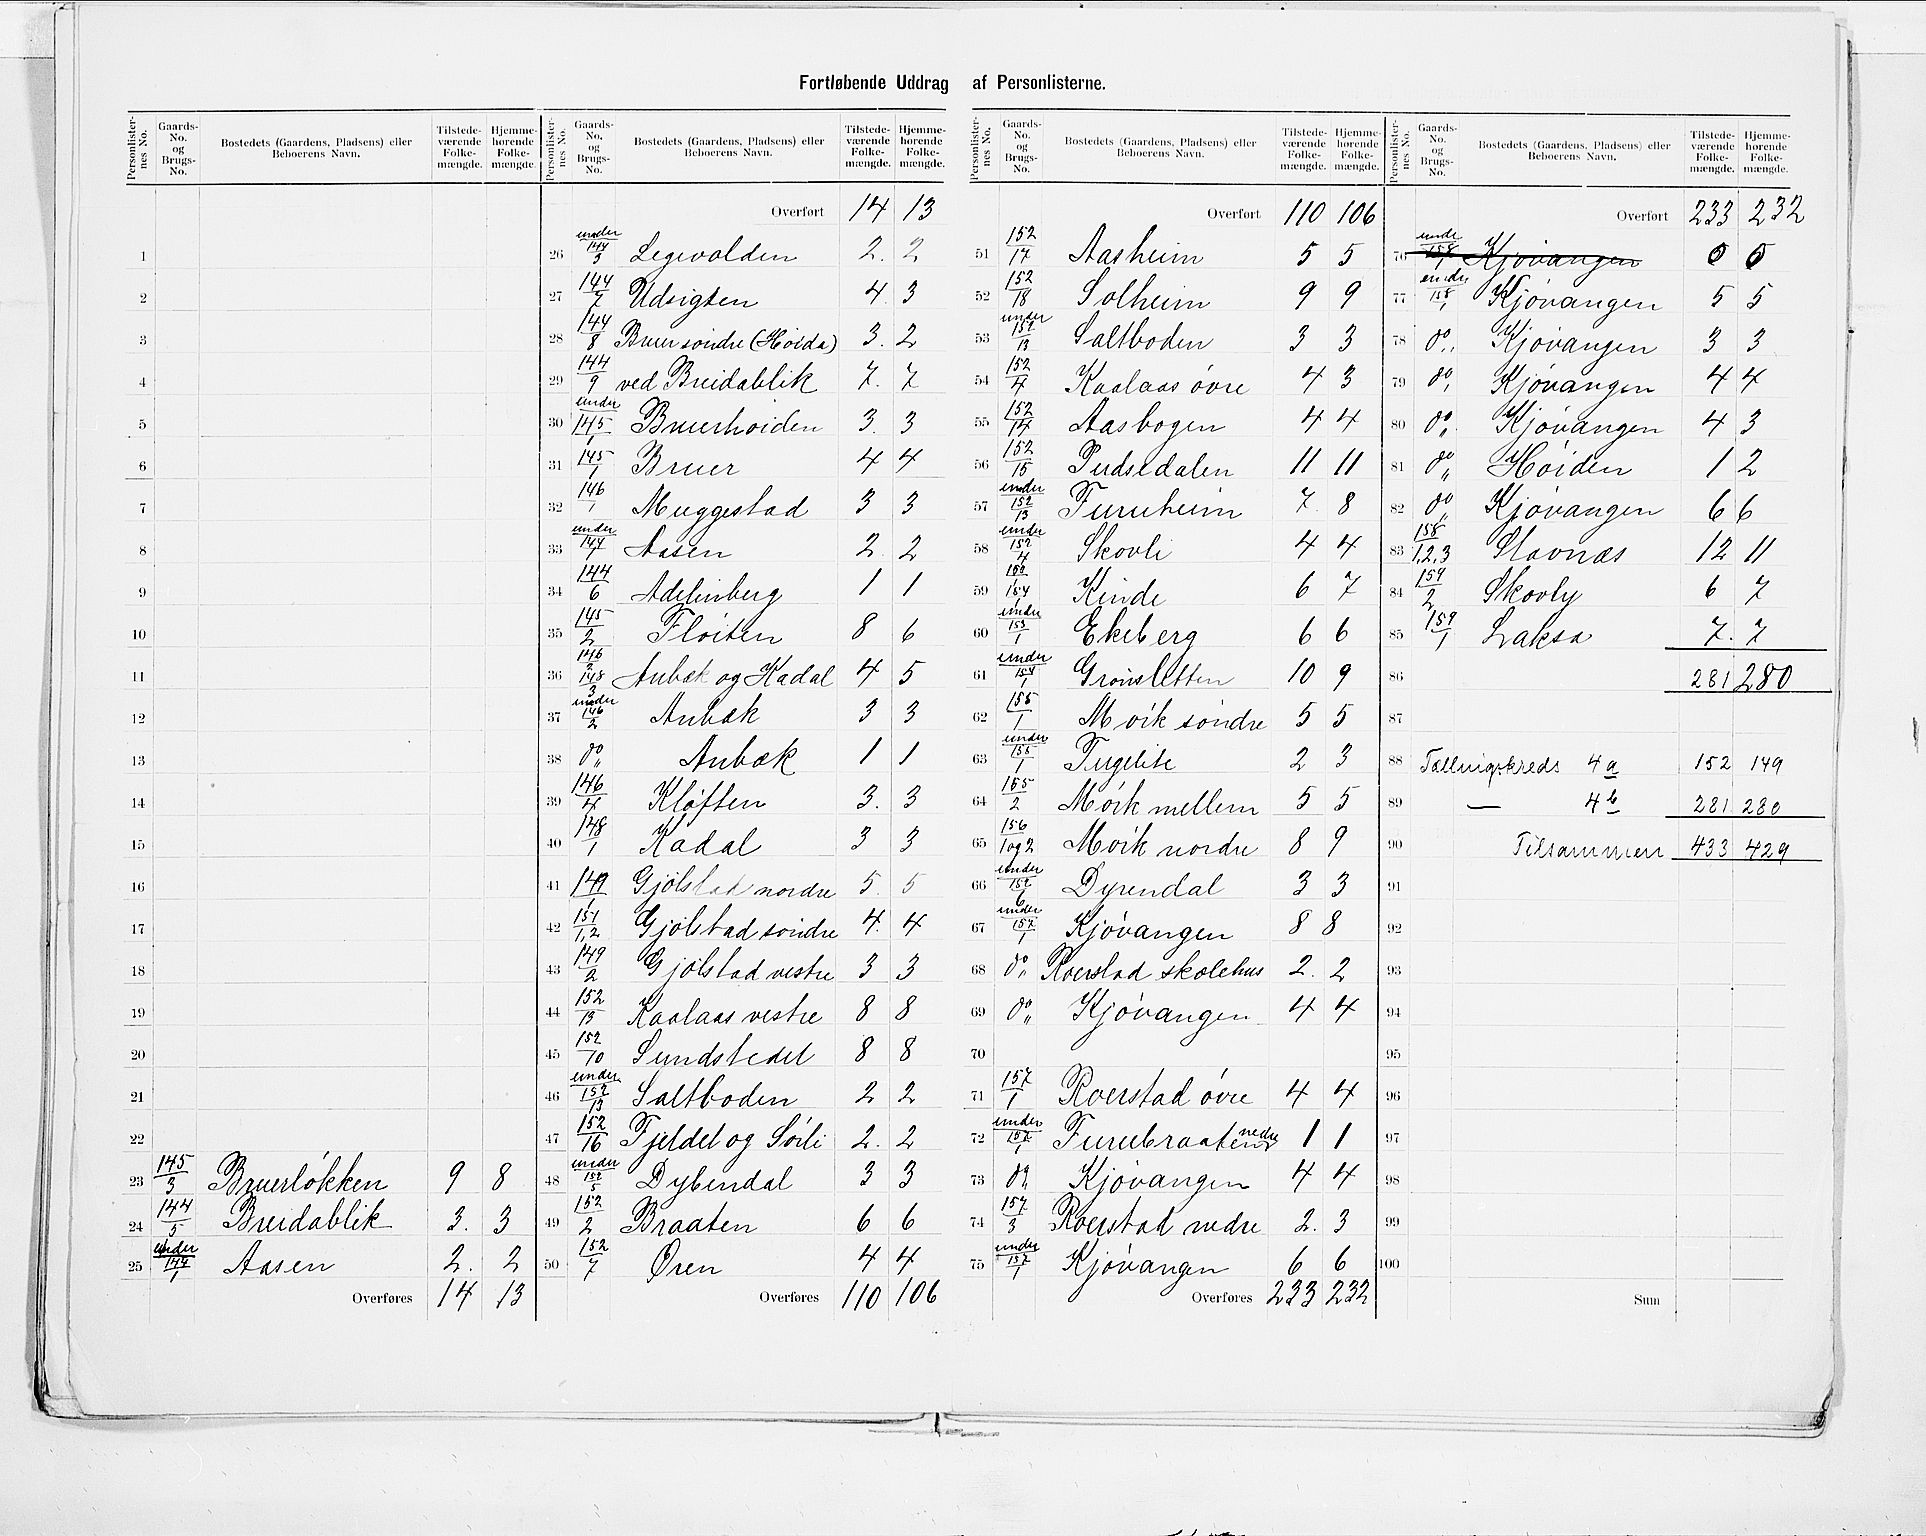 Fortløbende Uddrag af Personlisterne.
Personlister-nes No. Gaards-No. og Brugs-No. Bostedets (Gaardens, Pladsens) eller Beboerens Navn. Tilstede-værende Folke-mængde. Hjemme-hørende Folke-mængde.
1
2
3
4
5
6
7
8
9
10
11
12
13
14
15
16
17
18
19
20
21
22
23 145/3 Bruerløkken 9 8
24 144/5 Breidablik 3. 3
25 under 144/1 Aasen 2. 2
Overføres 14 13
Personlister-nes No. Gaards-No. og Brugs-No. Bostedets (Gaardens, Pladsens) eller Beboerens Navn. Tilstede-værende Folke-mængde. Hjemme-hørende Folke-mængde.
Overført 14 13
26 under 144/3 Legevolden 2. 2
27 144/7 Udsigten 4. 3
28 144/8 Bruer søndre (Høida) 3. 2
29 144/9 ved Breidablik 7. 7
30 under 145/1 Bruerhøiden 3. 3
31 145/1 Bruer 4 4
32 146/1 Muggestad 3 3
33 under 144/1 Aasen 2. 2
34 144/6 Adelinberg 1 1
35 145/2 Fløiten 8 6
36 146/2 148/3 Anbæk og Kadal 4 5
37 under 146/2 Anbæk 3 3
38 do „ Anbæk 1 1
39 146/4 Kløften 3. 3
40 148/1 Kadal 3 3
41 149/1 Gjølstad nordre 5. 5
42 151/1,2 Gjølstad søndre 4. 4
43 149/2 Gjølstad vestre 3 3
44 152/13 Kaalaas vestre 8 8
45 152/10 Sundstedet 8 8
46 under 152/13 Saltboden 2 2
47 152/16 Fjeldet og Sørli 2. 2
48 under 152/5 Dybendal 3 3
49 152/2 Braaten 6 6
50 152/7 Øren 4 4
Overføres 110 106
Personlister-nes No. Gaards-No. og Brugs-No. Bostedets (Gaardens, Pladsens) eller Beboerens Navn. Tilstede-værende Folke-mængde. Hjemme-hørende Folke-mængde.
Overført 110 106
51 152/17 Aasheim 5 5
52 152/18 Solheim 9 9
53 under 152/13 Saltboden 3 3
54 152/4 Kaalaas øvre 4 3
55 152/14 Aasbogen 4 4
56 152/15 Pudsedalen 11 11
57 under 152/13 Furuheim 7. 8
58 under 152/4 Skovli 4 4
59 Kinde 6 7
60 under 153/1 Ekeberg 6 6
61 under 154/1 Grønsletten 10 9
62 155/1 Mørk søndre 5 5
63 under 155/1 Fugelite 2 3
64 155/2 Mørk mellem 5 5
65 156/1 og 2 Mørk nordre 8 9
66 under 152/6 Dyrendal 3 3
67 under 157/1 Kjøvangen 8 8
68 do „ Roerstad skolehus 2. 2
69 do „ Kjøvangen 4 4
70
71 157/1 Roerstad øvre 4 4
72 under 157/1 Furubraaten nedre 1 1
73 do „ Kjøvangen 4 4
74 157/3 Roerstad nedre 2. 3
75 under 157/1 Kjøvangen 6 6
Overføres 233 232
Personlister-nes No. Gaards-No. og Brugs-No. Bostedets (Gaardens, Pladsens) eller Beboerens Navn. Tilstede-værende Folke-mængde. Hjemme-hørende Folke-mængde.
Overført 233 232
76 unde 158/1 Kjøvangen 0 0
77 under 158/1 Kjøvangen 5 5
78 do „ Kjøvangen 3 3
79 do „ Kjøvangen 4 4
80 do „ Kjøvangen 4 3
81 do „ Høiden 1 2
82 do „ Kjøvangen 6 6
83 158/1,2,3 Stavnæs 12 11
84 159/2 Skovly 6 7
85 159/1 Laksa 7. 7
86 281 280
87
88 Tællingskreds 4a 152 149
89 — 4b 281 280
90 Tilsammen 433 429
91
92
93
94
95
96
97
98
99
100
Sum